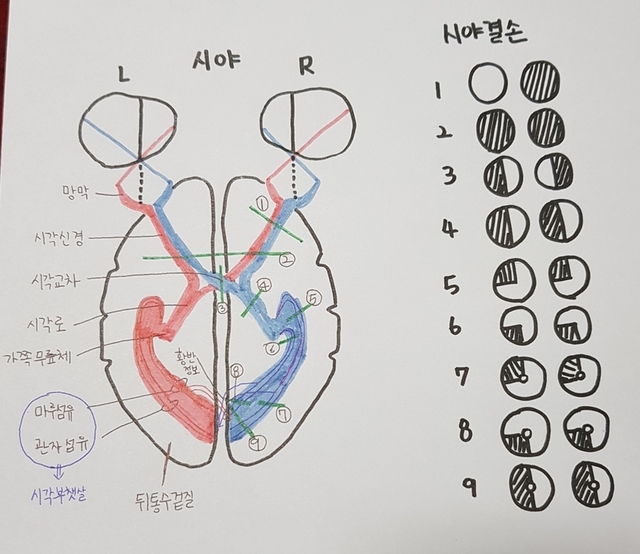 시야결손
L 시야 R
망막
시각신경
시각교차
시각로
가쪽무릎체
황반
정보
마루섬유
관자섬유
시각부챗살
뒤통수겉질
①
②
③
④
⑤
⑥
⑦
⑧
⑨
1
2
3
4
5
6
7
8
9